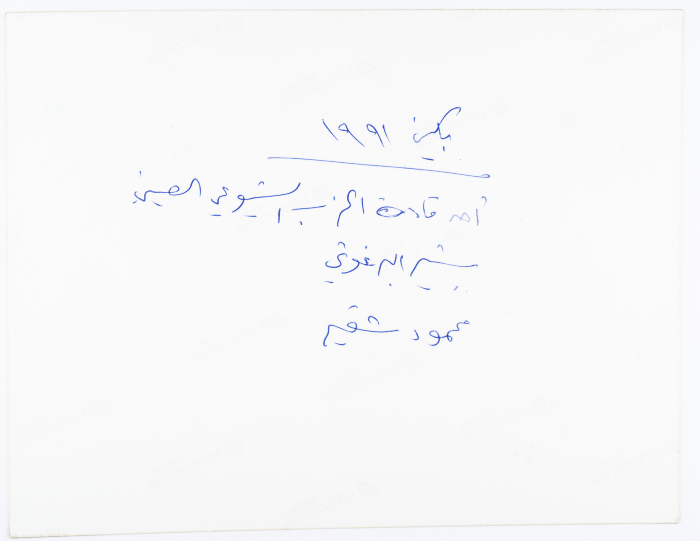 بكين ١٩٩١
أحد قادة الحزب الشيوعي الصيني
بشير البرغوثي
محمود شقير